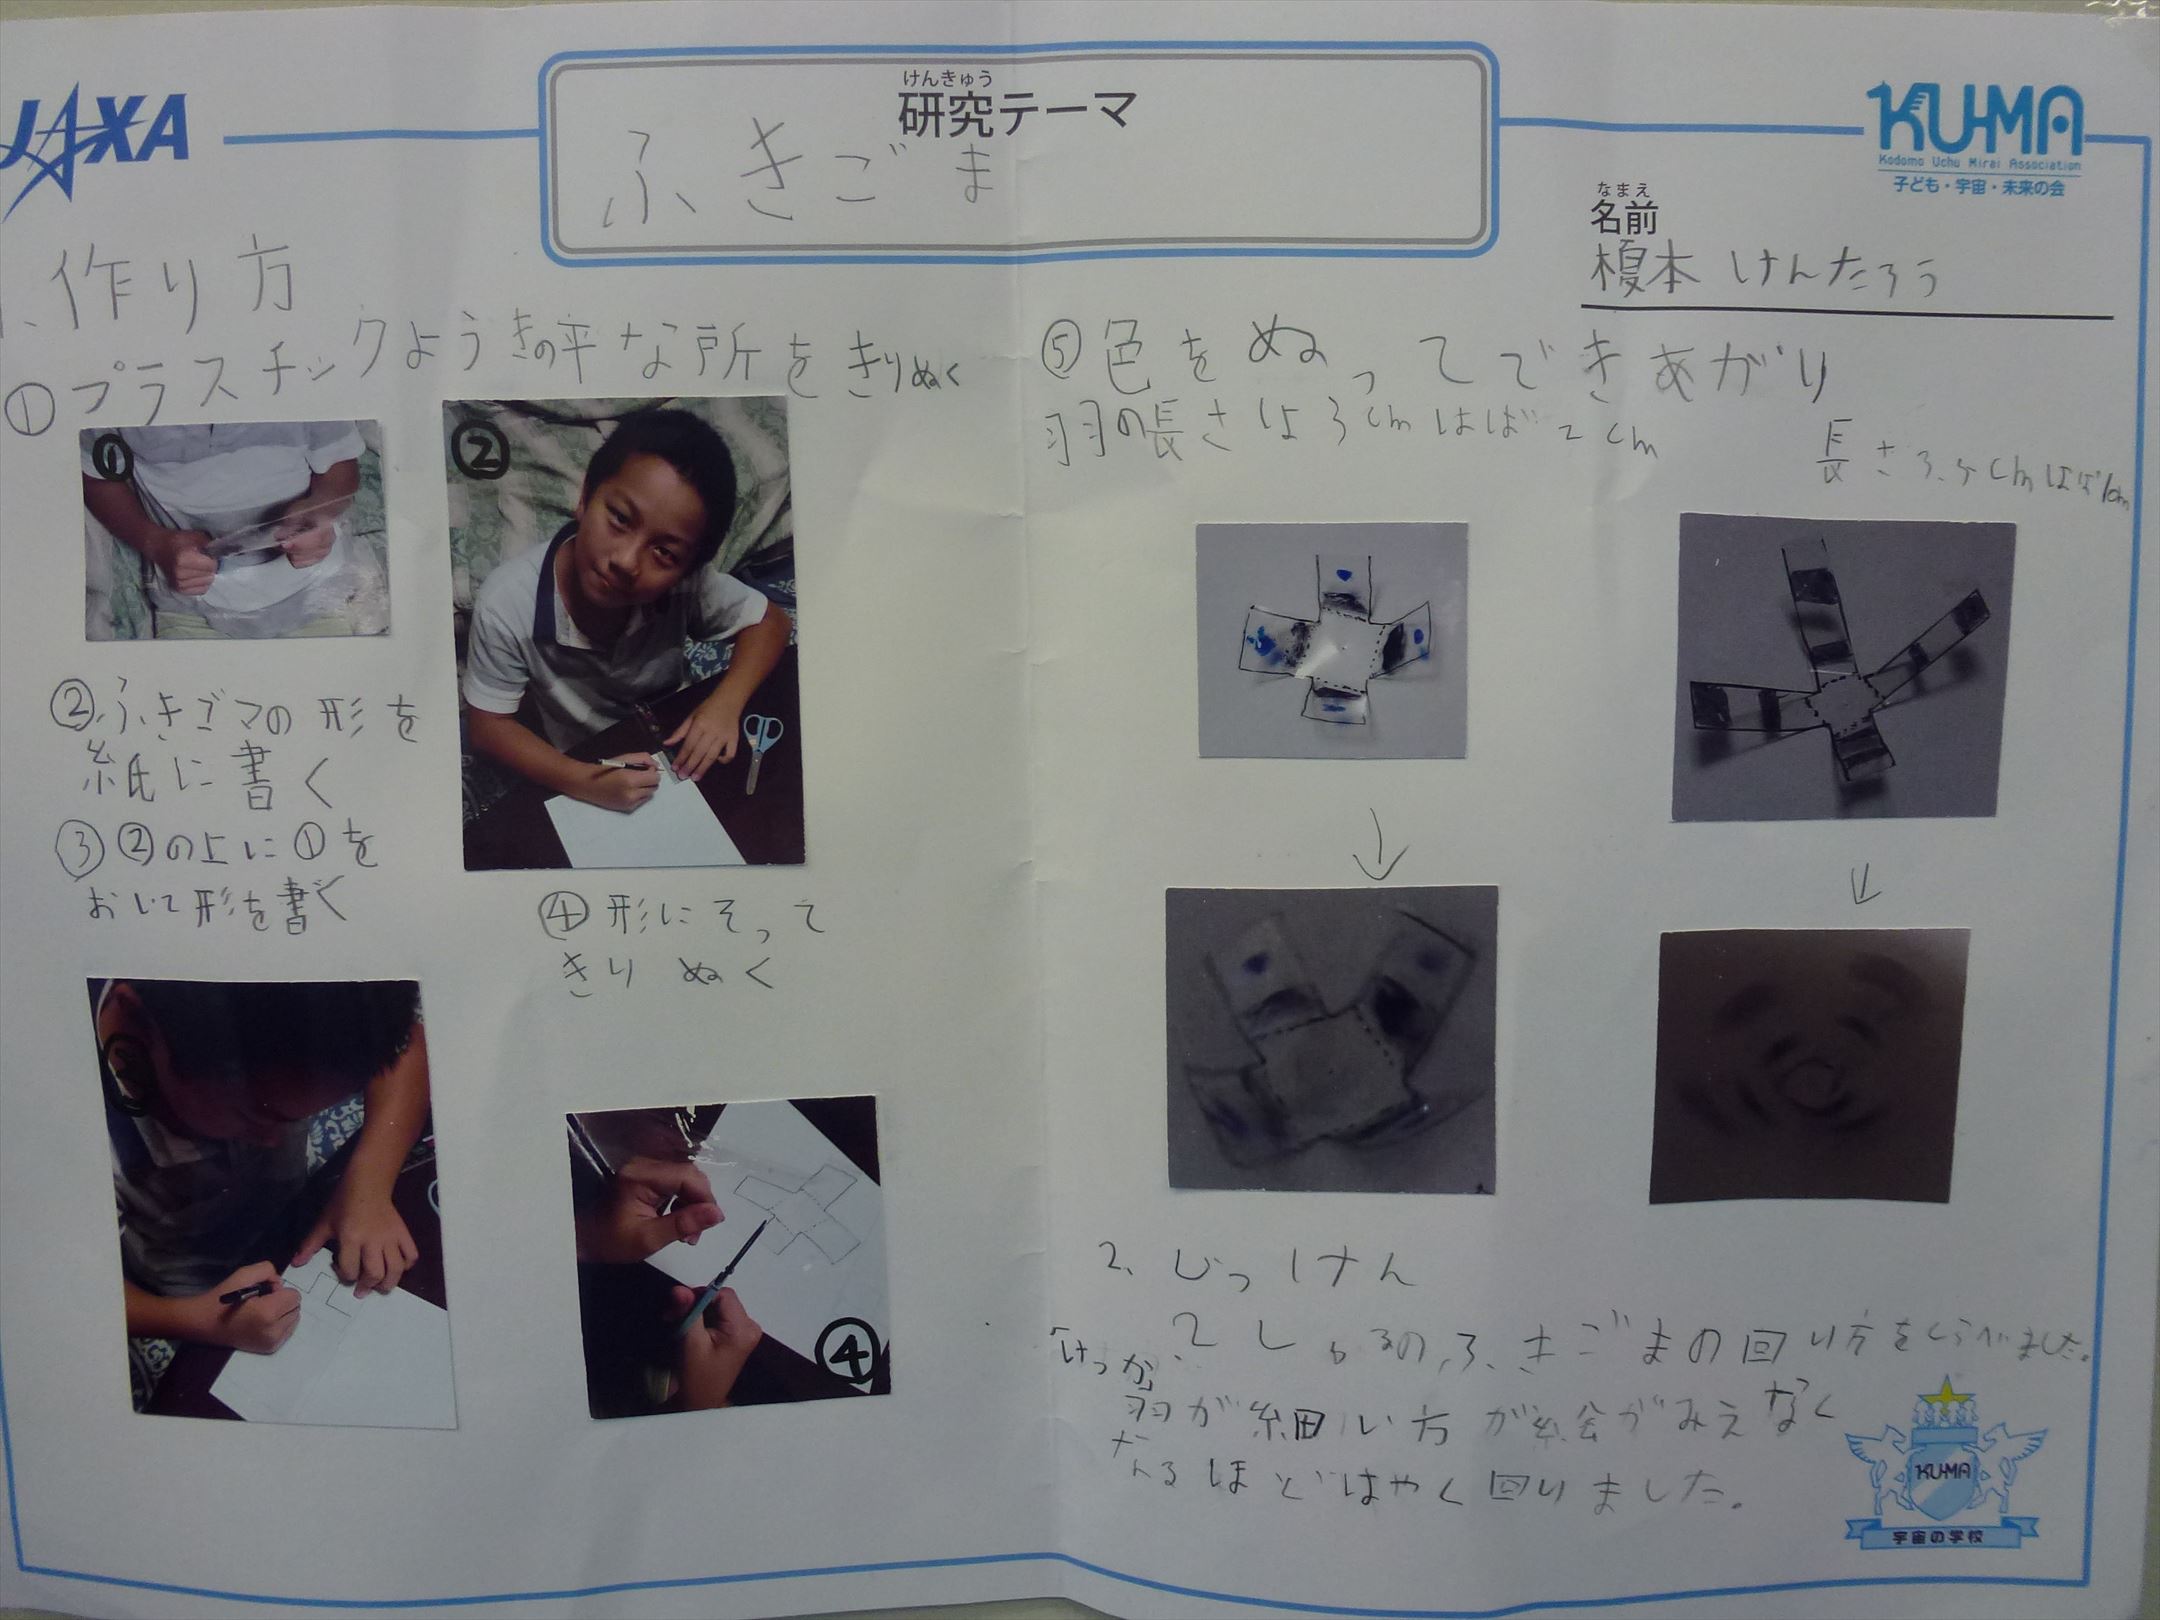 JAXA
けんきゅう
研究テーマ
ふきごま
KU-MA
Kodomo Uchu Mirai Association
子ども・宇宙・未来の会
なまえ
名前
榎本 けんたろう
1、作り方
①プラスチックようきの平な所をきりぬく
①
②
②ふきゴマの形を
紙に書く
③②の上に①を
おいて形を書く
④形にそって
きりぬく
④
⑤色をぬってできあがり
羽の長さは3cmはば2cm
長さ3.5cmはば1cm
↓
↓
2、じっけん
2しゅるいのふきごまの回り方をくらべました。
けっか
羽が細い方が絵がみえなく
なるほどはやく回りました。
KU-MA
宇宙の学校